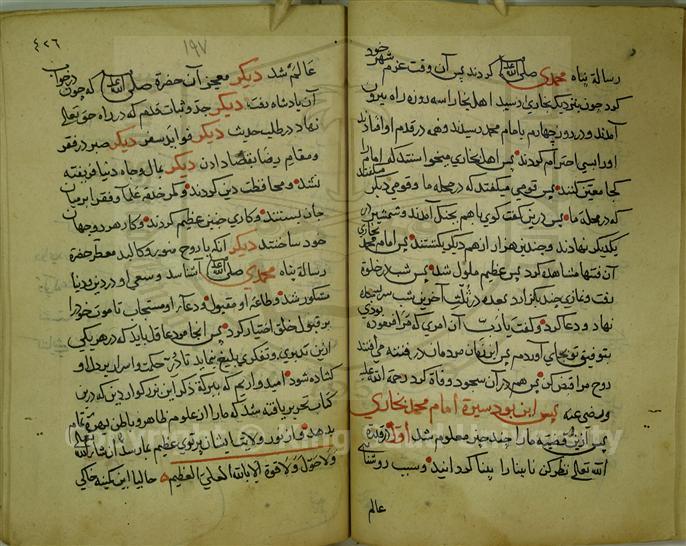 رسالة پناه محمدی صلی الله علیه کردند پس آن وقت عزم شهر خود
کرد چون بنزدیکی بخاری رسید اهل بخارا سه روزه راه بیرون
آمدند و در روز چهارم با امام محمد رسیدند و همی در قدم او افتادند
او را بسی احترام کردند پس اهل بخاری میخواستند که امام را
کجا معین کنند پس قومی میگفتند که در محله ما و قومی دیگر میگفتند
که در محله ما پس درین گفت کوی باهم بجنك آمدند و شمشیر در
یکدیگر نهادند و چند هزار از هم دیگر بکشتند پس امام محمد بخاری
آن فتنها مشاهده کرد پس عظیم ملول شد پس شب در خلوة
رفت و نمازی چند بگزارد بعده در ثلث آخرین شب سر بسجده
نهاد و دعا کرد و گفت یا رب آن امری که مرا فرموده بودی
بتوفیق تو بجای آوردم پس این زمان مردمان در فتنه می افتند
روح مرا قبض کن پس هم در آن سجود وفاة کرد رحمة الله علیه
ورضی عنه پس این بود سیرة امام محمد بخاری
پس ازین قضیه ما را چند چیز معلوم شد اول قدرة
الله تعالی نظر کن نابینا را بینا کردانید و سبب روشنائی
عالم
٤٢٦
١٩٧
عالم شد دیکر معجز آن حضرة صلی الله علیه که چون در خواب
آن پادشاه رفت دیکر جد و ثبات قدم که در راه حق تعالی
نهاد در طلب حدیث دیکر فواید سفر دیکر صبر در فقر
ومقام رضا بقضا دادن دیکر بمال وجاه دنیا فریفته
نشد و محافظت دین کردند و کمر خدمة علما و فقرا بر میان
جان بستند و کاری چنین عظیم کردند و کار هر دو جهان
خود ساختند دیکر آنکه با روح منور و کالبد معطر حضرة
رسالة پناه محمدی صلی الله علیه آشنا سد وسعی او در دین و دنیا
مشکور شد و طاعة او مقبول و دعاء او مستجاب تا موت خود را
بر قبول خلق اختیار کرد پس اینجا مرد عاقل باید که در هر یکی
ازین تدبری و تفکری بلیغ نماید تا در حکمت و اسرار بر دل او
کشاده شود امید واریم که ببرکة ذکر این بزرگوار دین که درین
کتاب تحریر یافته شد که ما را از علوم ظاهر و باطن بهرة تمام
بدهد و از نور ولایة ایشان پرتوی عظیم بما رسد ان شاء الله
ولا حول ولا قوة الا بالله العلي العظيم حالیا این کمینه خاکی
Copyright © King Saud University